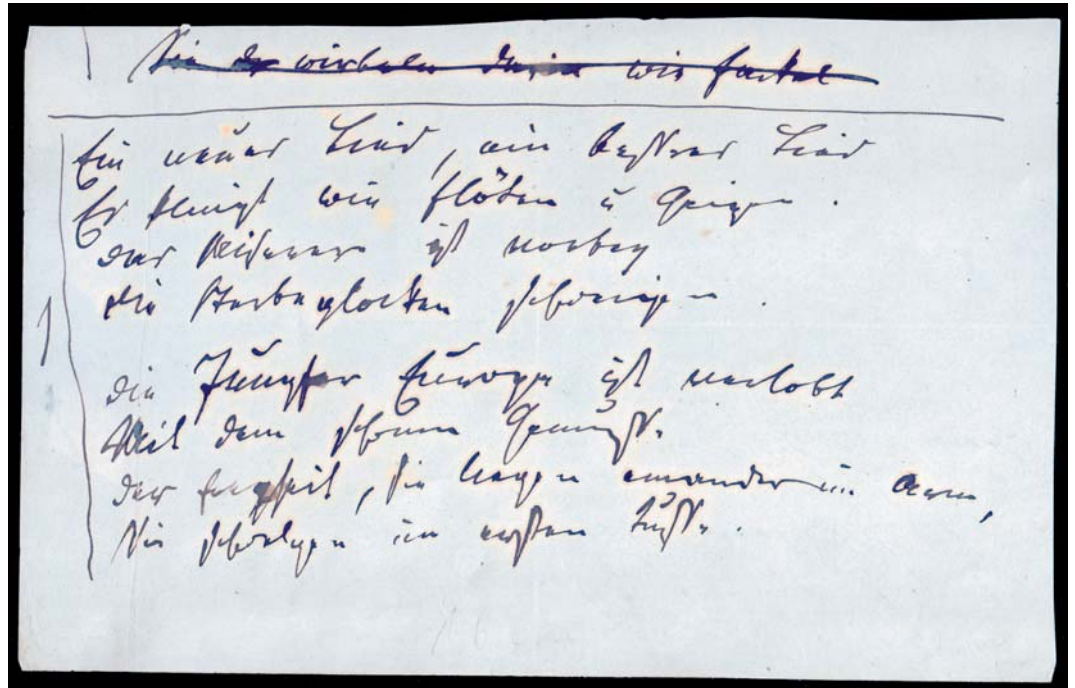 Sie wirbeln wie
Ein neues Lied, ein bessres Lied
Es klingt wie Flöten u Geigen.
das Miserere ist vorbey
die Sterbeglocken schweigen.
die Jungfer Europa ist verlobt
Mit dem schönen Geniusse
der Freyheit, sie liegen einander im Arm,
Sie schwelgen im ersten Kusse.